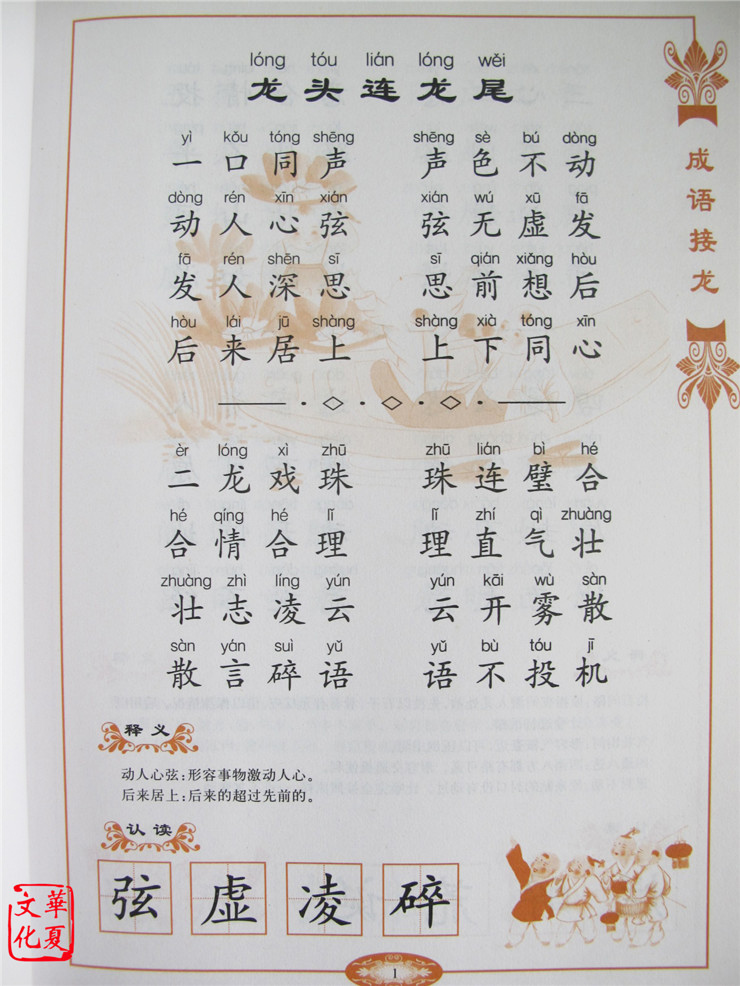 lóng tóu lián lóng wěi
龙头连龙尾
yì kǒu tóng shēng shēng sè bú dòng
一口同声 声色不动
dòng rén xīn xián xián wú xū fā
动人心弦 弦无虚发
fā rén shēn sī sī qián xiǎng hòu
发人深思 思前想后
hòu lái jū shàng shàng xià tóng xīn
后来居上 上下同心
èr lóng xì zhū zhū lián bì hé
二龙戏珠 珠连璧合
hé qíng hé lǐ lǐ zhí qì zhuàng
合情合理 理直气壮
zhuàng zhì líng yún yún kāi wù sàn
壮志凌云 云开雾散
sàn yán suì yǔ yǔ bù tóu jī
散言碎语 语不投机
释义
动人心弦：形容事物激动人心。
后来居上：后来的超过先前的。
认读
弦 虚 凌 碎
成语接龙
1
華夏文化